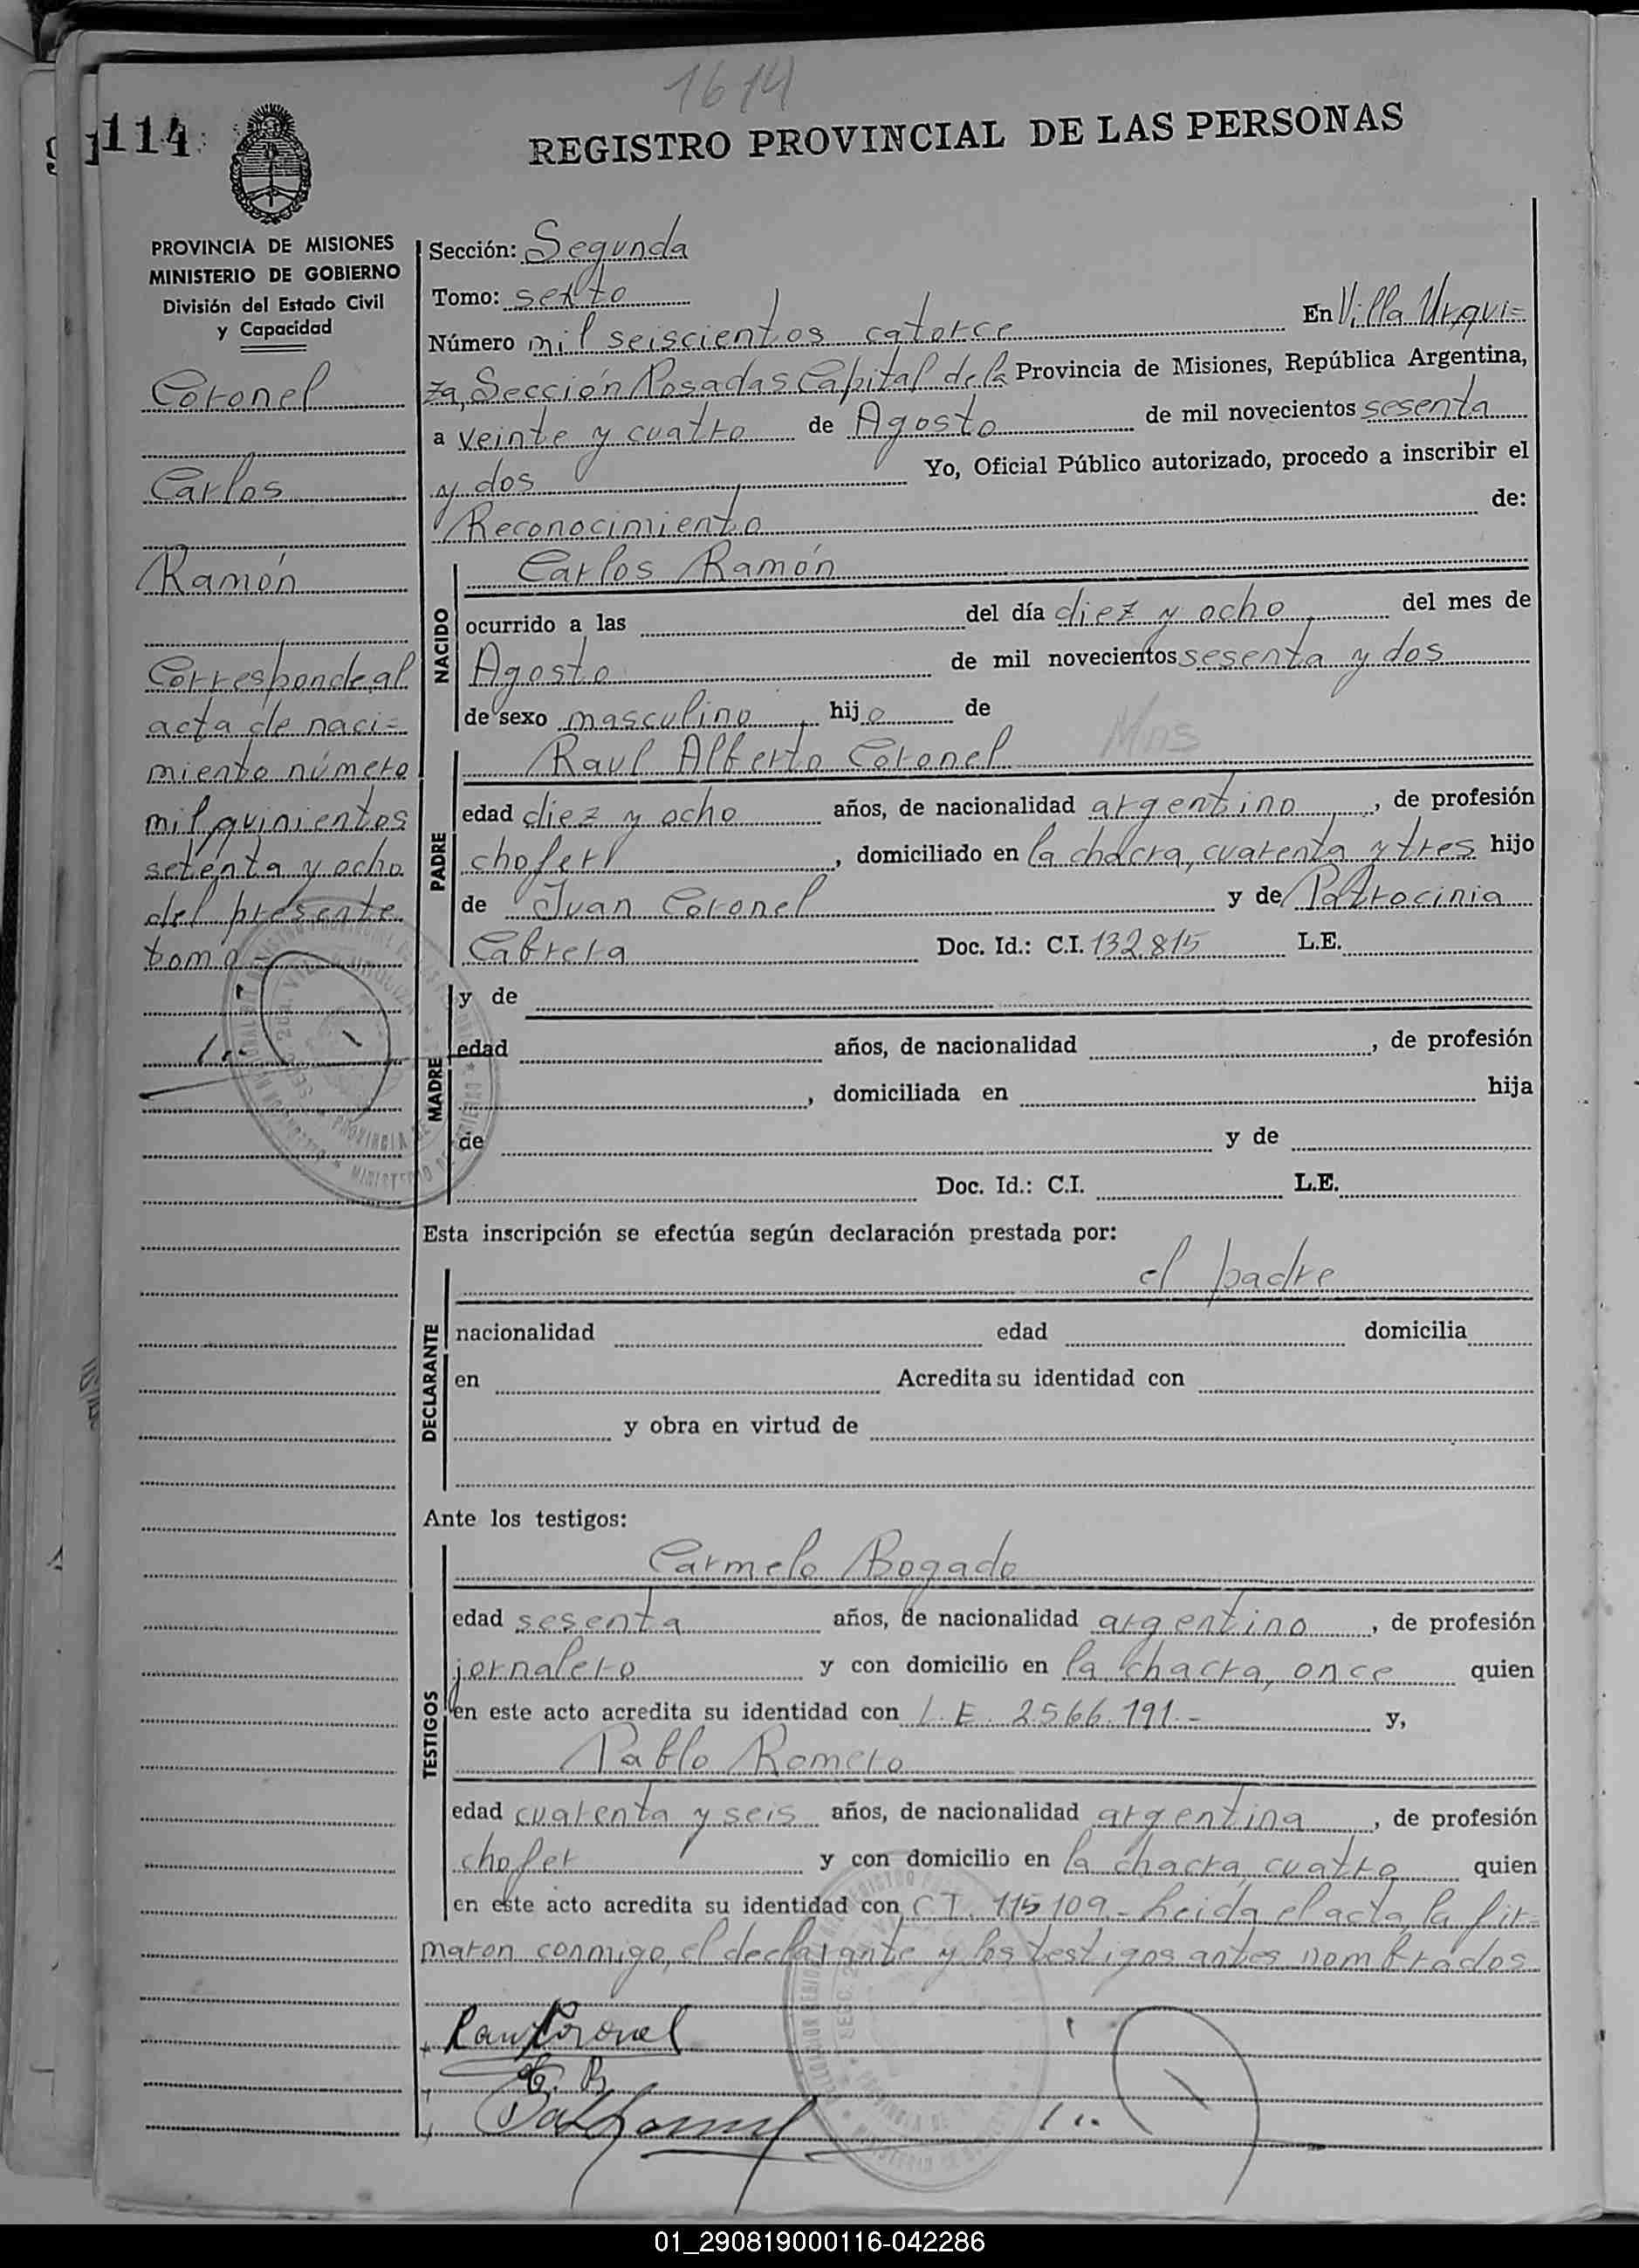 1614
114
REGISTRO PROVINCIAL DE LAS PERSONAS
PROVINCIA DE MISIONES
MINISTERIO DE GOBIERNO
División del Estado Civil
y Capacidad
Coronel
Carlos
Ramón
Corresponde al
acta de naci=
miento número
mil quinientos
setenta y ocho
del presente
tomo=
Sección: Segunda
Tomo: sexto
Número mil seiscientos catorce En Villa Urqui=
za, Sección Posadas Capital de la Provincia de Misiones, República Argentina,
a veinte y cuatro de Agosto de mil novecientos sesenta
y dos Yo, Oficial Público autorizado, procedo a inscribir el
Reconocimiento de:
NACIDO
Carlos Ramón
ocurrido a las del día diez y ocho del mes de
Agosto de mil novecientos sesenta y dos
de sexo masculino, hijo de
Mns
PADRE
Raul Alberto Coronel
edad diez y ocho años, de nacionalidad argentino, de profesión
chofer, domiciliado en la chacra, cuarenta y tres hijo
de Juan Coronel y de Patrocinia
Cabrera Doc. Id.: C.I. 132.815 L.E.
MADRE
y de
edad años, de nacionalidad , de profesión
, domiciliada en hija
de y de
Doc. Id.: C.I. L.E.
Esta inscripción se efectúa según declaración prestada por:
el padre
DECLARANTE
nacionalidad edad domicilia
en Acredita su identidad con
y obra en virtud de
Ante los testigos:
TESTIGOS
Carmelo Bogado
edad sesenta años, de nacionalidad argentino, de profesión
jornalero y con domicilio en la chacra, once quien
en este acto acredita su identidad con L.E. 2566.191.- y,
Pablo Romero
edad cuarenta y seis años, de nacionalidad argentina, de profesión
chofer y con domicilio en la chacra cuatro quien
en este acto acredita su identidad con C.I. 115109.- Leida el acta, la fir=
maron conmigo, el declarante y los testigos antes nombrados
Raul Coronel
C. B.
01_290819000116-042286